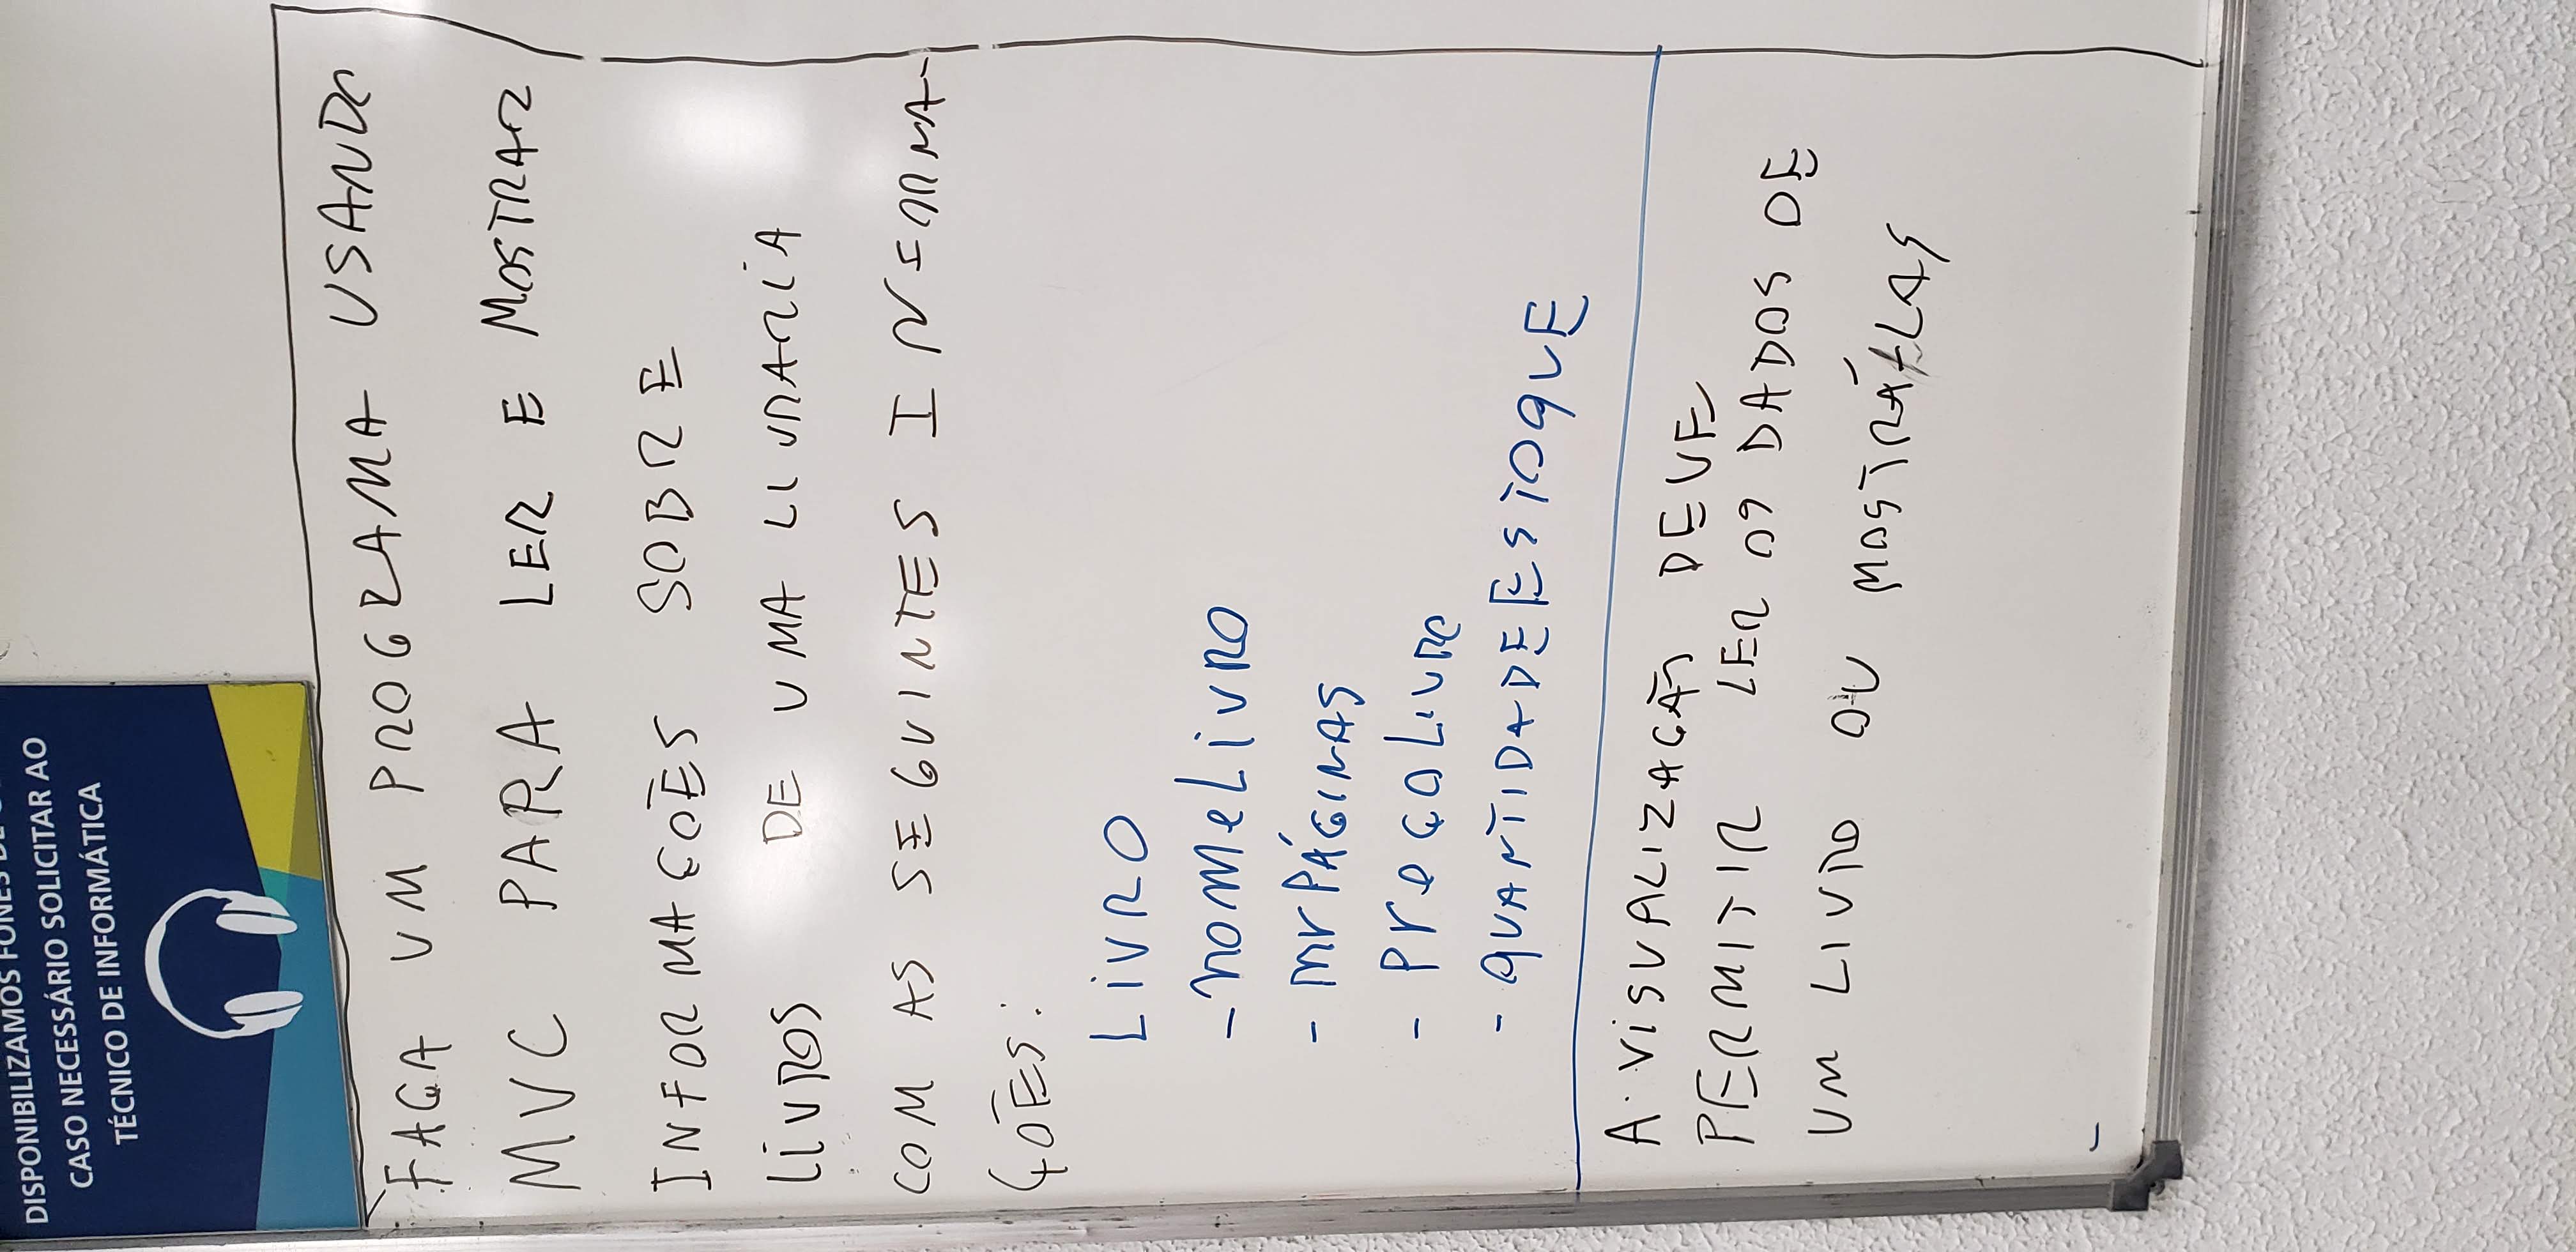 DISPONIBILIZAMOS FONES DE
CASO NECESSÁRIO SOLICITAR AO
TÉCNICO DE INFORMÁTICA
FAÇA UM PROGRAMA USANDO
MVC PARA LER E MOSTRAR
INFORMAÇÕES SOBRE
LIVROS DE UMA LIVRARIA
COM AS SEGUINTES INFORMA-
ÇÕES:
LIVRO
- nomeLivro
- nrPÁGINAS
- preçoLivro
- QUANTIDADEESTOQUE
A VISUALIZAÇÃO DEVE
PERMITIR LER OS DADOS DE
UM LIVRO OU MOSTRÁ-LAS